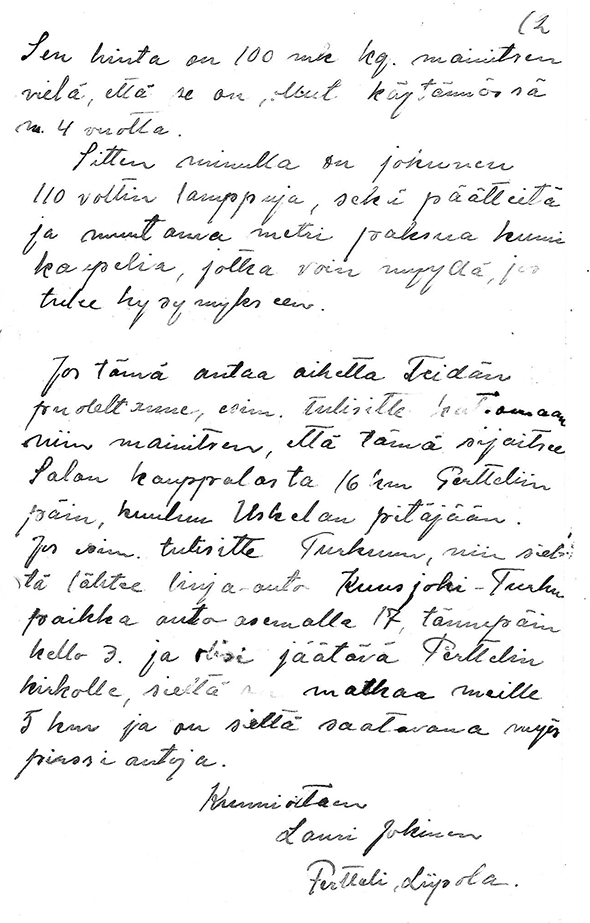 (2
Sen hinta on 100 mk kg. mainitsen
vielä, että se on ollut käytännössä
n. 4 vuotta.
Sitten minulla on jokunen
110 voltin lamppuja, sekä päätteitä
ja muutama metri paksua kumi
kaapelia, jotka voin myydä, jos
tulee kysymykseen.
Jos tämä antaa aihetta Teidän
puoleltanne, esim. tulisitte katsomaan
niin mainitsen, että tämä sijaitsee
Salon kauppalasta 16 km Perttelin
päin, kuuluu Uskelan pitäjään.
Jos esim. tulisitte Turkuun, niin siel-
tä lähtee linja-auto Kuusjoki-Turku
paikka auto asemalla 17, tännepäin
kello 3. ja olisi jäätävä Perttelin
kirkolle, sieltä on matkaa meille
5 km ja on sieltä saatavana myös
pirssi autoja.
Kunnioittaen
Lauri Jokinen
Pertteli, Liipola.